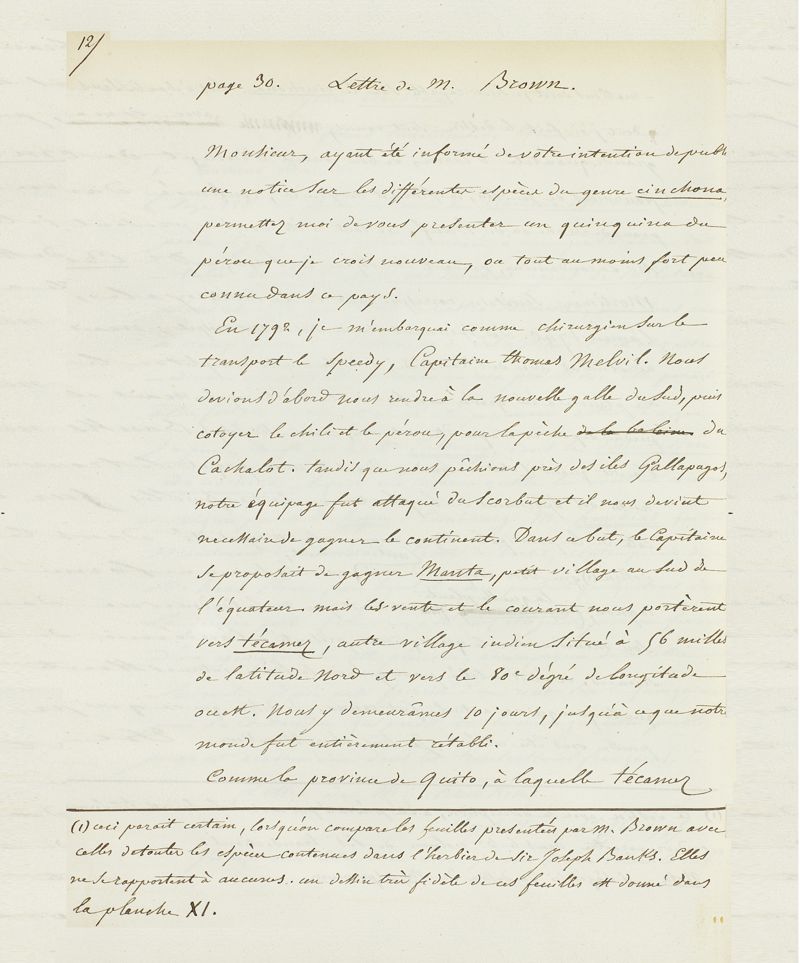 12/
page 30. Lettre de M. Brown.
Monsieur, ayant été informé de votre intention de publi
une notice sur les différentes espèces du genre cinchona,
permettez moi de vous presenter un quinquina du
pérou que je crois nouveau, ou tout au moins fort peu
connu dans ce pays.
En 1792, je m'embarquai comme chirurgien sur le
transport le Speedy, Capitaine thomas Melvil. Nous
devions d'abord nous rendre à la nouvelle galle du Sud, puis
cotoyer le chili et le pérou, pour la pêche de la baleine du
Cachalot. tandis que nous pêchions près des iles Gallapagos,
notre équipage fut attaqué du scorbut et il nous devint
necessaire de gagner le continent. Dans ce but, le Capitaine
se proposait de gagner Manta, petit village au Sud de
l'équateur mais les vents et le courant nous portèrent
vers técamez, autre village indien situé à 56 milles
de latitude Nord et vers le 80e dégré de longitude
ouest. Nous y demeurâmes 10 jours, jusqu'à ce que notre
monde fut entièrement rétabli.
Comme la province de Quito, à laquelle técamez
(1) ceci parait certain, lorsqu'on compare les feuilles presentées par M. Brown avec
celles de toutes les espèces contenues dans l'herbier de Sir Joseph Banks. Elles
ne se rapportent à aucunes. un dessin très fidèle de ces feuilles est donné dans
la planche XI.